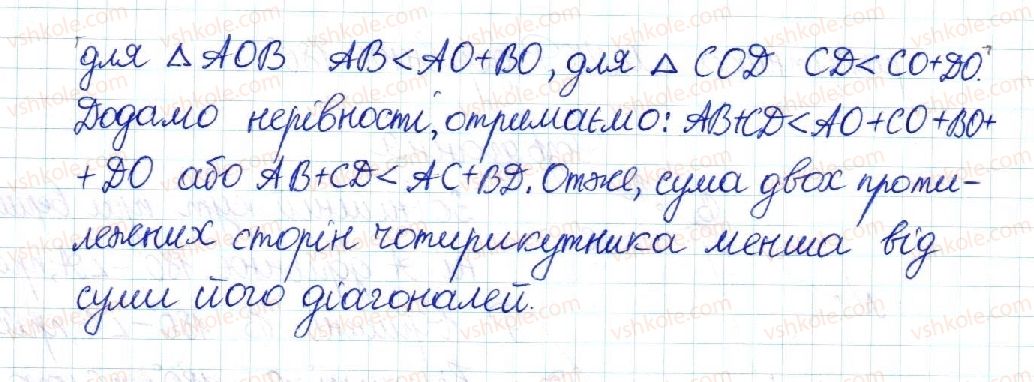 для △ AOB AB < AO + BO, для △ COD CD < CO + DO.
Додамо нерівності, отримаємо: AB + CD < AO + CO + BO +
+ DO або AB + CD < AC + BD. Отже, сума двох проти-
лежних сторін чотирикутника менша від
суми його діагоналей.